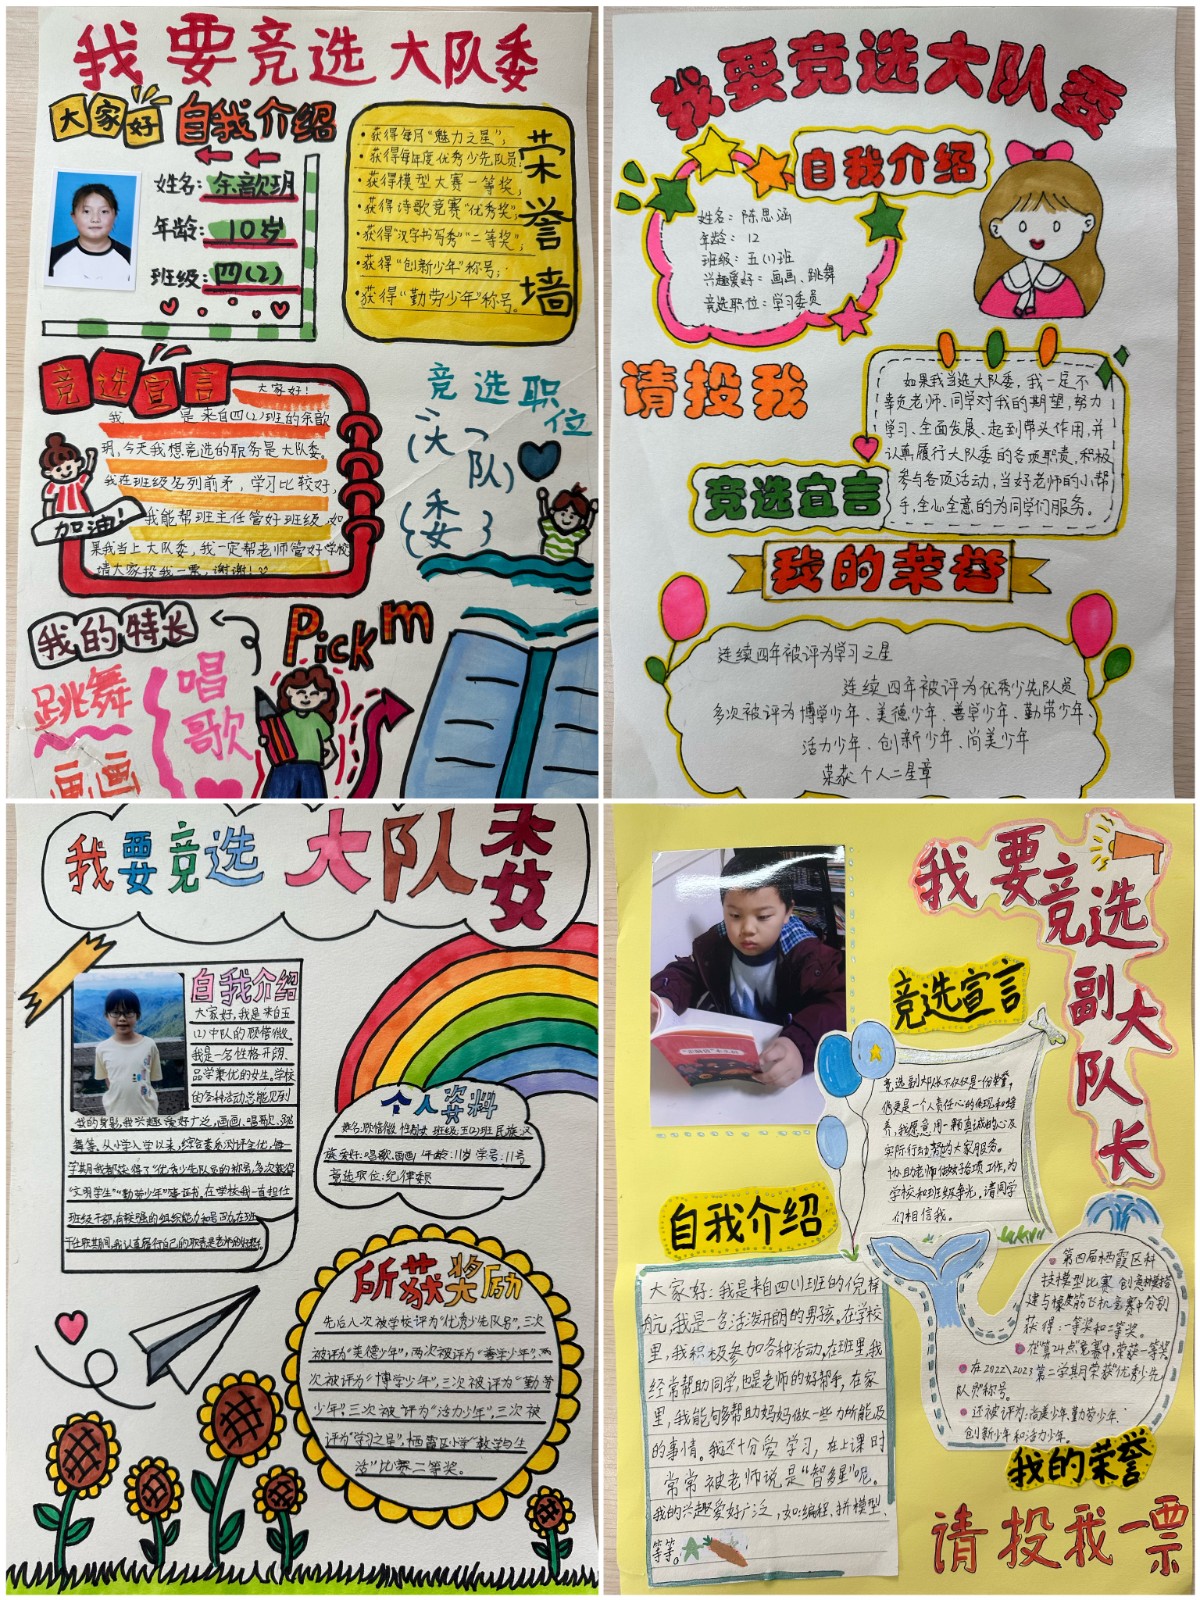 我要竞选大队委
大家好 自我介绍
姓名：余歆玥
年龄：10岁
班级：四(2)
荣誉墙
•获得每月“魅力之星”；
•获得每年度优秀少先队员；
•获得模型大赛一等奖；
•获得诗歌竞赛“优秀奖”；
•获得“汉字书写秀”二等奖”；
•获得“创新少年”称号；
•获得“勤劳少年”称号。
竞选宣言
大家好！
我 是来自四(2)班的余歆
玥，今天我想竞选的职务是大队委。
我在班级名列前矛，学习比较好，
我能帮班主任管好班级。如
果我当上大队委，我一定帮老师管好学校
请大家投我一票，谢谢！
加油！
竞选职位
(大队委)
我的特长
跳舞
画画
唱歌
Pick m
我要竞选大队委
自我介绍
姓名：陈思涵
年龄：12
班级：五(1)班
兴趣爱好：画画、跳舞
竞选职位：学习委员
请投我
竞选宣言
如果我当选大队委，我一定不
辜负老师、同学对我的期望，努力
学习、全面发展、起到带头作用，并
认真履行大队委的各项职责，积极
参与各项活动，当好老师的小帮
手，全心全意的为同学们服务。
我的荣誉
连续四年被评为学习之星
连续四年被评为优秀少先队员
多次被评为博学少年、美德少年、善学少年、勤劳少年、
活力少年、创新少年、尚美少年
荣获个人二星章
我要竞选大队委
自我介绍
大家好，我是来自五
(2)中队的顾倍微。
我是一名性格开朗、
品学兼优的女生。学校
的各种活动总能见到
我的身影，我兴趣爱好广泛，画画、唱歌、跳
舞等。从小学入学以来，综合素质测评全优，每一
学期我都获得了“优秀少先队员的称号，多次获得
“文明学生”“勤劳少年”等证书，在学校我一直担任
班级干部，有较强的组织能力和号召力，在班
干任职期间，我认真履行自己的职责是老师的
个人资料
姓名：顾倍微 性别：女 班级：五(2)班 民族：汉
族 爱好：唱歌、画画 年龄：11岁 学号：11号
竞选职位：纪律委员
所获奖励
先后八次被学校评为“优秀少先队员”，三次
被评为“美德少年”，两次被评为“善学少年”，两
次被评为“博学少年”，三次被评为“勤劳
少年”，三次被评为“活力少年”，三次被
评为“学习之星”，栖霞区小学“数学与生
活”比赛二等奖。
我要竞选副大队长
竞选宣言
竞选副大队长不仅仅是一份荣誉，
更是一个人责任心的体现和培
养。我愿意用一颗真诚的心及
实际行动帮为大家服务。
协助老师做好各项工作，为
学校和班级争光，请同学
们相信我。
自我介绍
大家好：我是来自四(1)班的倪梓
航，我是一名活泼开朗的男孩。在学校
里，我积极参加各种活动，在班里，我
经常帮助同学，也是老师的好帮手，在家
里，我能够帮助妈妈做一些力所能及
的事情。我还十分爱学习，在上课时
常常被老师说是“智多星”呢。
我的兴趣爱好广泛，如：编程、拼模型、
等等。
•第四届栖霞区科
技模型比赛创意
建与橡皮筋飞机竞赛中分别
获得：一等奖和二等奖。
•在“算24点”竞赛中，荣获一等奖。
•在2022\2023第二学期荣获“优秀少先
队员”称号。
•还被评为：尚美少年、勤劳少年、
创新少年和活力少年。
我的荣誉
请投我一票